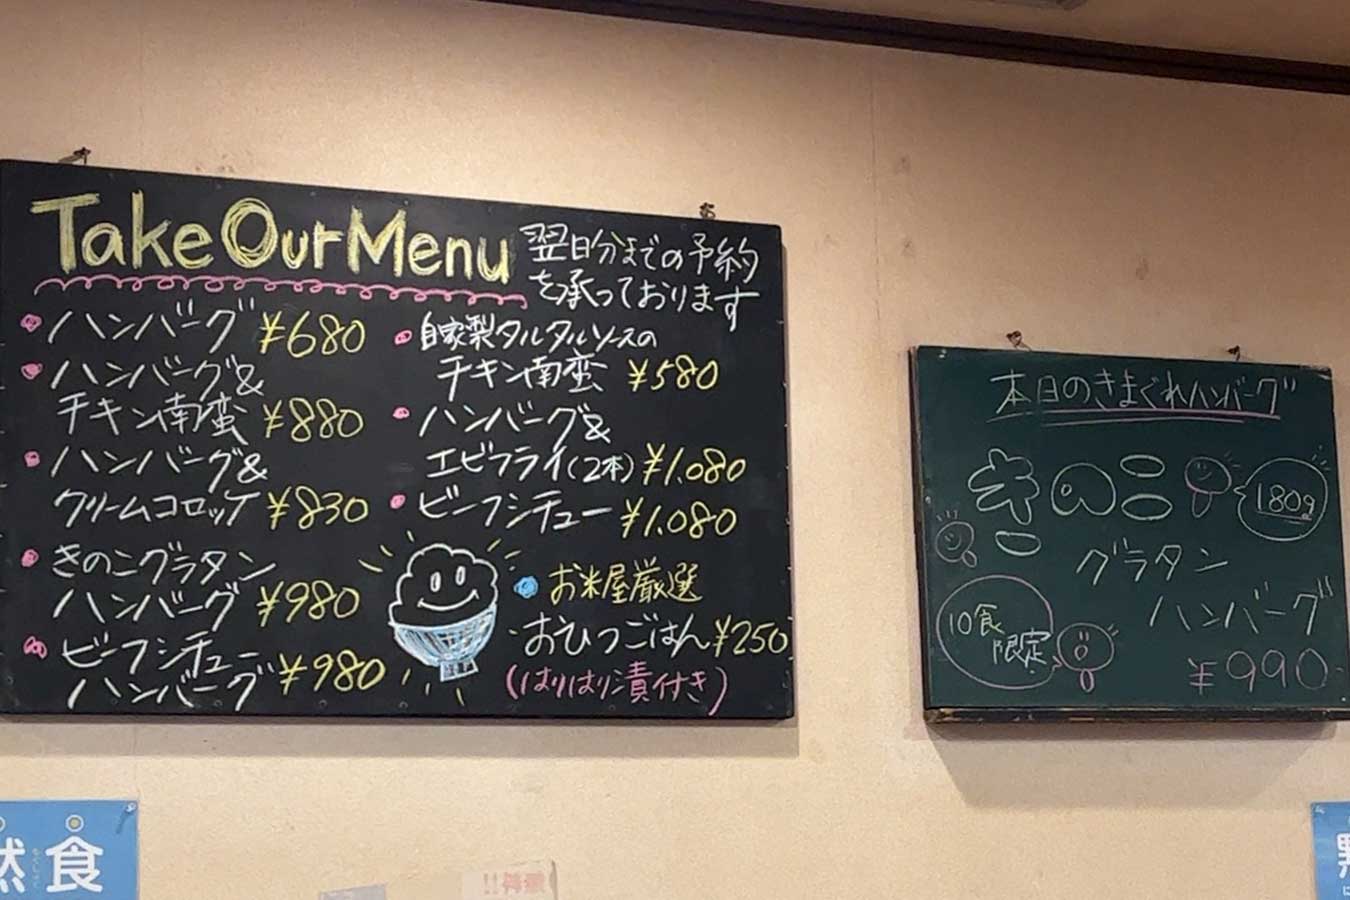 Take Our Menu
翌日分までの予約
を承っております
ハンバーグ ¥680
ハンバーグ&
チキン南蛮 ¥880
ハンバーグ&
クリームコロッケ ¥830
きのこグラタン
ハンバーグ ¥980
ビーフシチュー
ハンバーグ ¥980
自家製タルタルソースの
チキン南蛮 ¥580
ハンバーグ&
エビフライ(2本) ¥1.080
ビーフシチュー ¥1.080
お米屋厳選
おひつごはん ¥250
(はりはり漬付き)
本日のきまぐれハンバーグ
きのこ
180g
グラタン
ハンバーグ
10食
限定
¥990
黙食